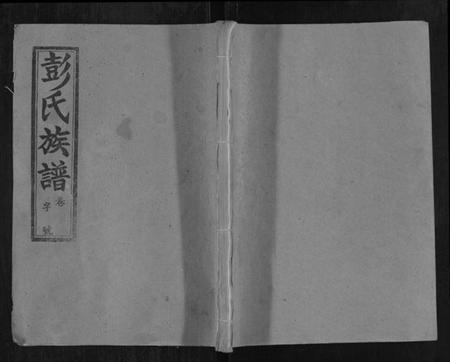 彭氏族譜
卷
字
號